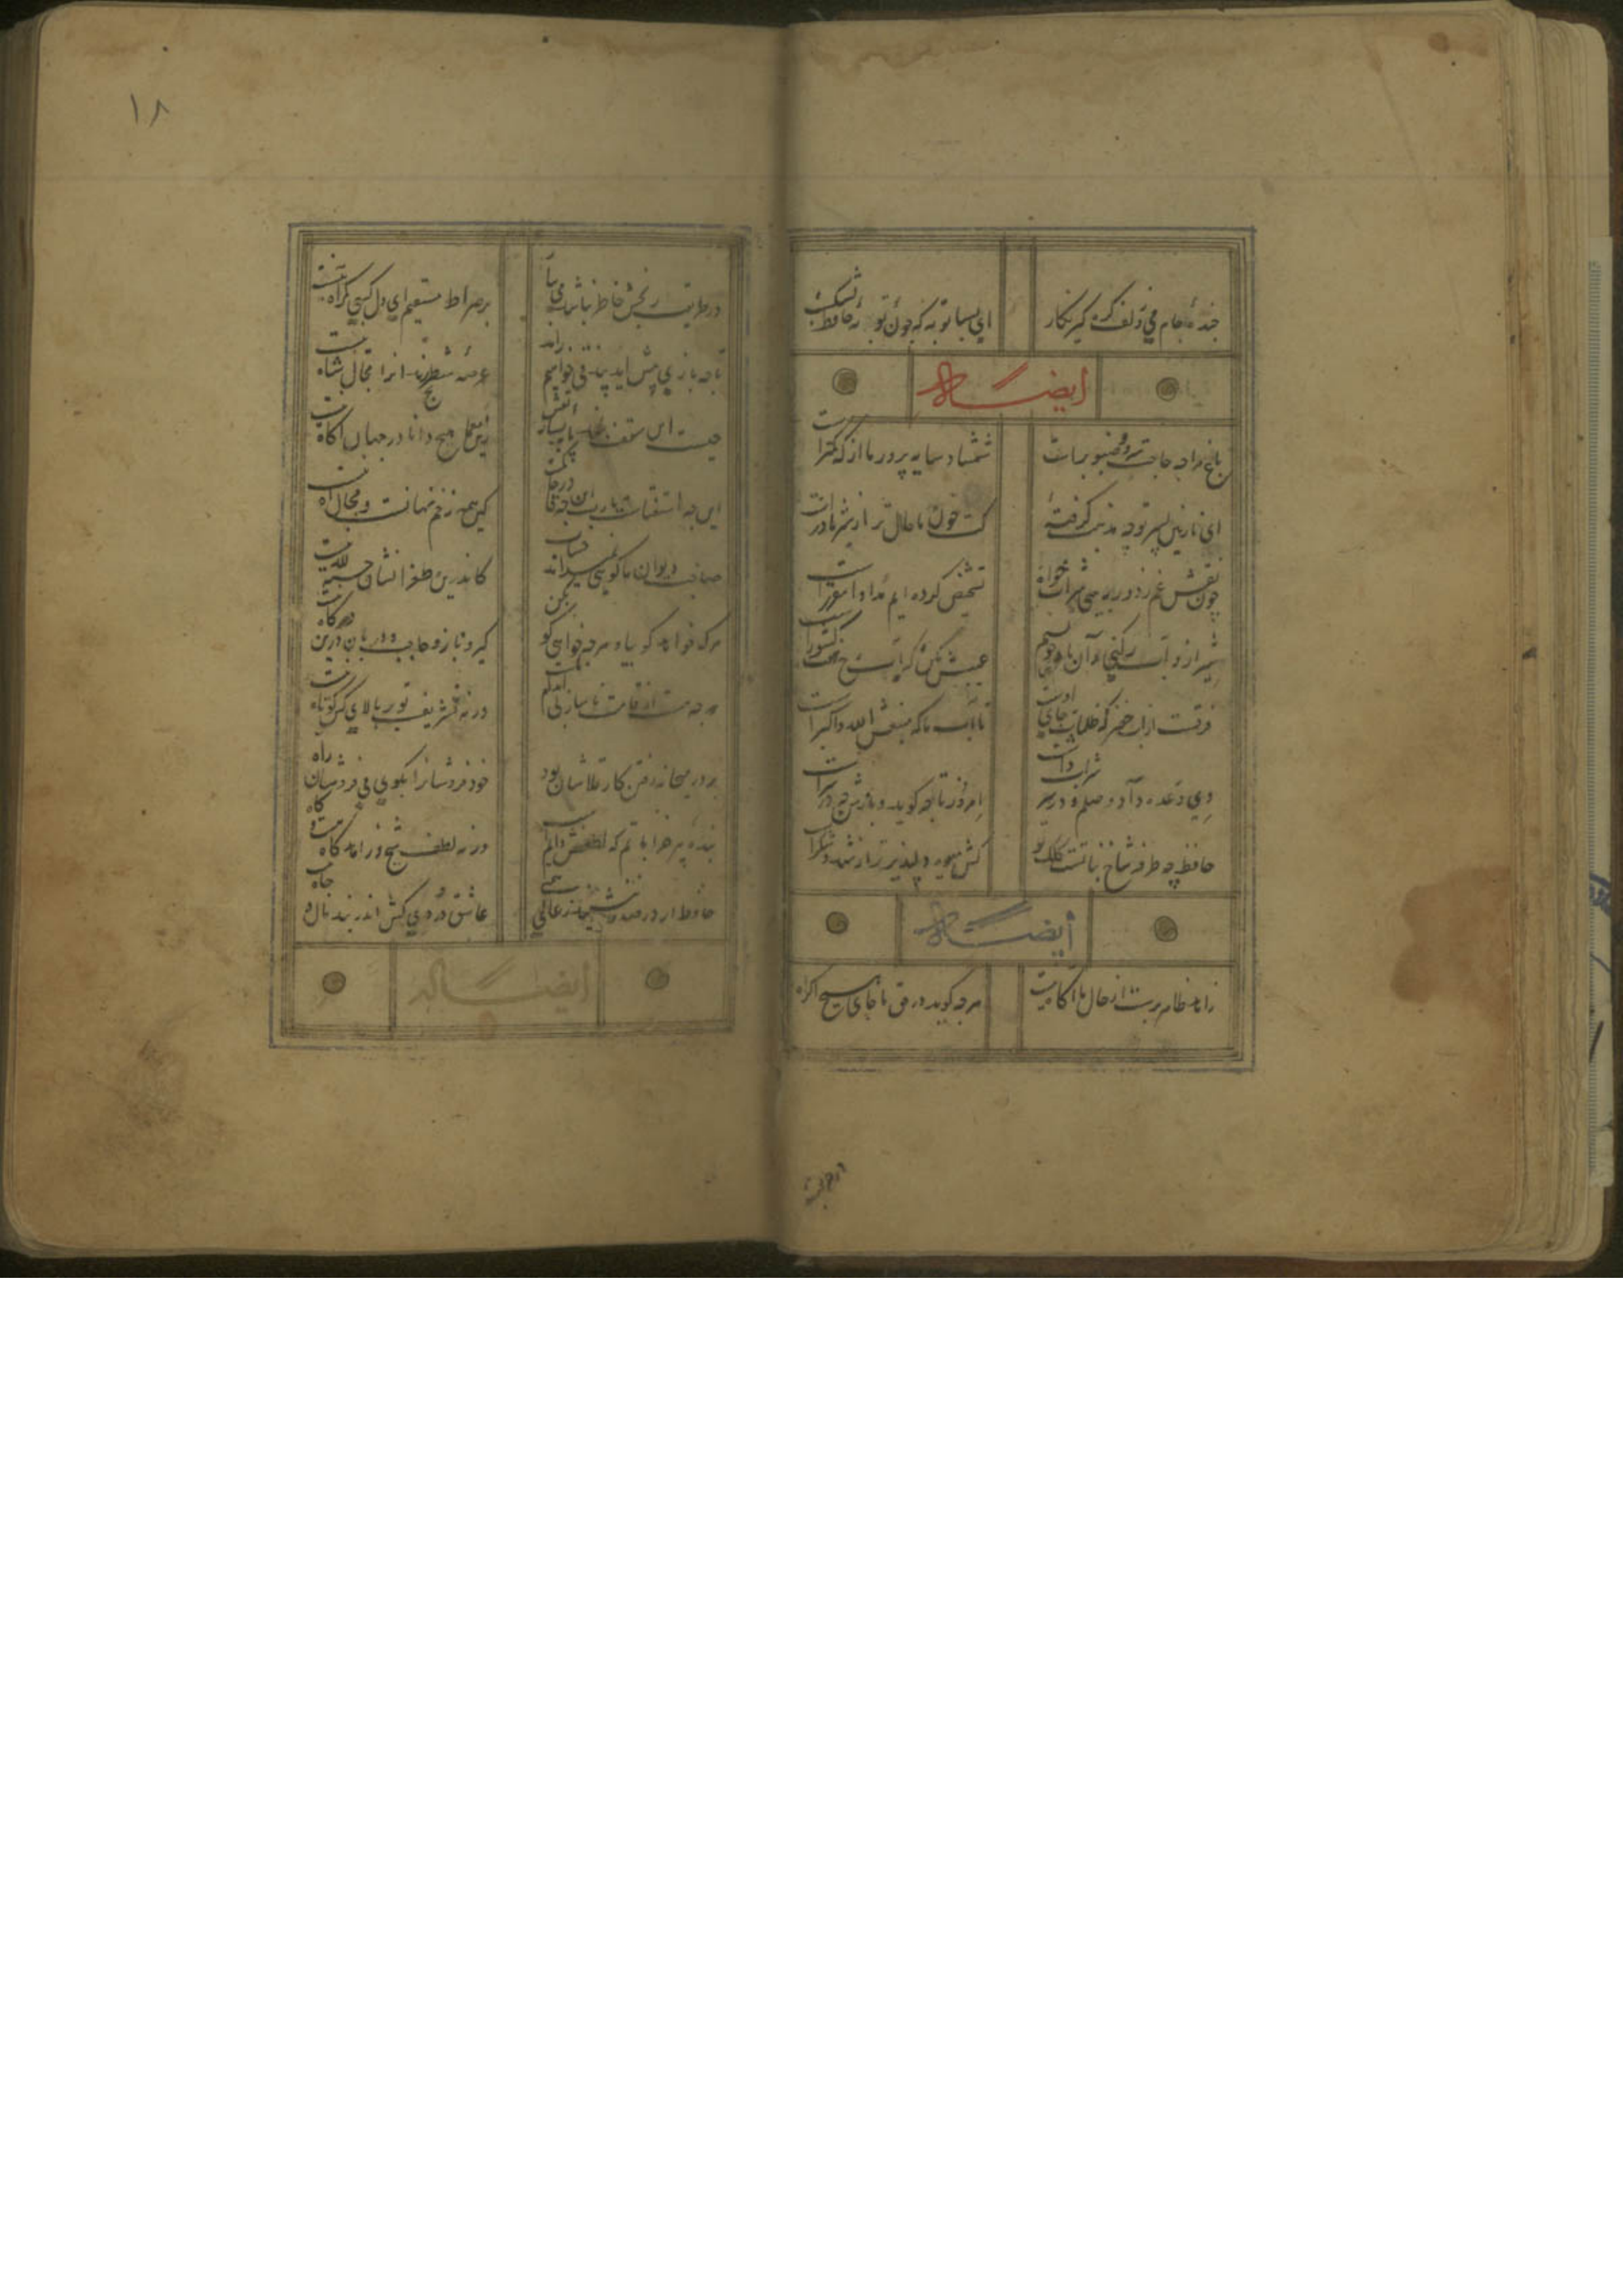 خنده جام می و زلف گره گیر نکار
ای بسا توبه که چون توبه حافظ بشکست
ایضاله
باغ مرا چه حاجت سرو و صنوبرست
شمشاد سایه پرور ما از که کمترست
ای نازنین پسر تو چه مذهب گرفته
کت خون ما حلال تر از شیر مادرست
چون نقش غم ز دور ببینی شراب خواه
تشخیص کرده ایم و مداوا مقررست
شیراز و آب رکنی و آن باد خوش نسیم
عیبش مکن که آب رخ هفت کشورست
فرقست از آب خضر که ظلمات جای اوست
تا آب ما که منبعش الله و اکبرست
دی وعده داد وصلم و در سر شراب داشت
امروز تا چه کوید و بازش چه در سرست
حافظ چه طرفه شاخ نباتست کلک تو
کش میوه دلپذیرتر از شهد و شکرست
ایضاله
زاهد ظاهر پرست از حال ما آکاه نیست
هرچه کوید در حق ما جای هیچ اکراه
در طریقت
۱۸
در طریقت رنجش خاطر نباشد می بیار
بر صراط مستقیم ای دل کسی کمراه نیست
تا چه بازی پیش آید بیدقی خواهیم راند
عرصه شطرنج رندانرا مجال شاه نیست
چیست این سقف بلند پایه بسیار نقش
زین معما هیچ دانا در جهان آکاه نیست
این چه استغناست یارب این چه حکمت
کین همه زخم نهانست و مجال آه نیست
صاحب دیوان ما کویی نمیداند حساب
کاندرین طغرا نشان حسبة لله نیست
هرکه خواهد کو بیا و هرچه خواهی کو بکن
کبر و ناز و حاجب و دربان درین درکاه نیست
هرچه هست از قامت ناساز بی اندام
ورنه تشریف تو بر بالای کس کوتاه نیست
بر در میخانه رفتن کار قلاشان بود
خود فروشانرا بکوی می فروشان راه
بنده پیر خراباتم که لطفش دایم
ورنه لطف شیخ و زاهد کاه هست و کاه
حافظ ار بر صدر ننشیند ز عالی
عاشق دردی کش اندر بند مال و جاه
ایضاله